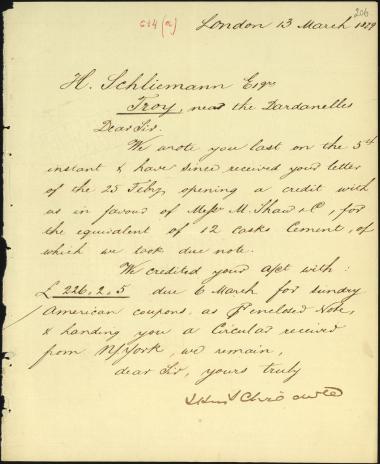 206
614 (a)
London 13 March 1879
H. Schliemann Esqre
Troy, near the Dardanelles
Dear Sir.
We wrote you last on the 5th
instant & have since received your letter
of the 25 Feby, opening a credit with
us in favour of Messrs M. Shaw & C, for
the equivalent of 12 casks Cement, of
which we took due note.
We credited your a/ct with:
£ 226.2.5 due 6 March for sundry
American coupons, as p enclosed Note,
& handing you a Circular received
from N/York, we remain,
dear Sir, yours truly